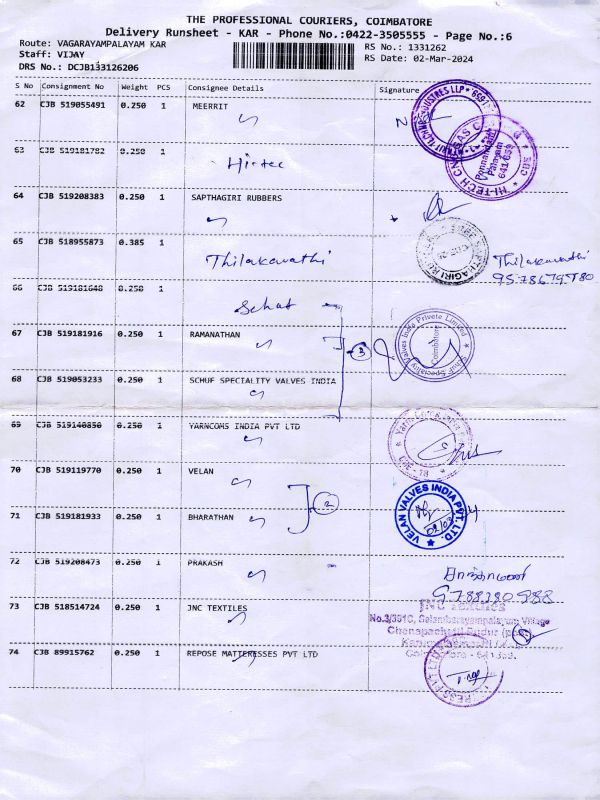 THE PROFESSIONAL COURIERS, COIMBATORE
Delivery Runsheet - KAR - Phone No.:0422-3505555 - Page No.:6
Route: VAGARAYAMPALAYAM KAR
RS No.: 1331262
Staff: VIJAY
RS Date: 02-Mar-2024
DRS No.: DCJB133126206
S No Consignment No Weight PCS Consignee Details Signature
62 CJB 519055491 0.250 1 MEERRIT
63 CJB 519181782 0.250 1 Hi-tec
HI-TECH
Ponnandam
Palayam
641 659
64 CJB 519208383 0.250 1 SAPTHAGIRI RUBBERS
65 CJB 518955873 0.385 1 Thilakavathi
Thilakavathi
66 CJB 519181648 0.250 1
67 CJB 519181916 0.250 1 RAMANATHAN
3
Schuf Speciality Valves India Private Limited
Coimbatore
68 CJB 519053233 0.250 1 SCHUF SPECIALITY VALVES INDIA
69 CJB 519140850 0.250 1 YARNCOMS INDIA PVT LTD
70 CJB 519119770 0.250 1 VELAN
2
VELAN VALVES INDIA PVT. LTD.
71 CJB 519181933 0.250 1 BHARATHAN
72 CJB 519208473 0.250 1 PRAKASH
73 CJB 518514724 0.250 1 JNC TEXTILES
JNC TEXTILES
No.3/391C, Selambarayampalayam Village
74 CJB 89915762 0.250 1 REPOSE MATTERESSES PVT LTD